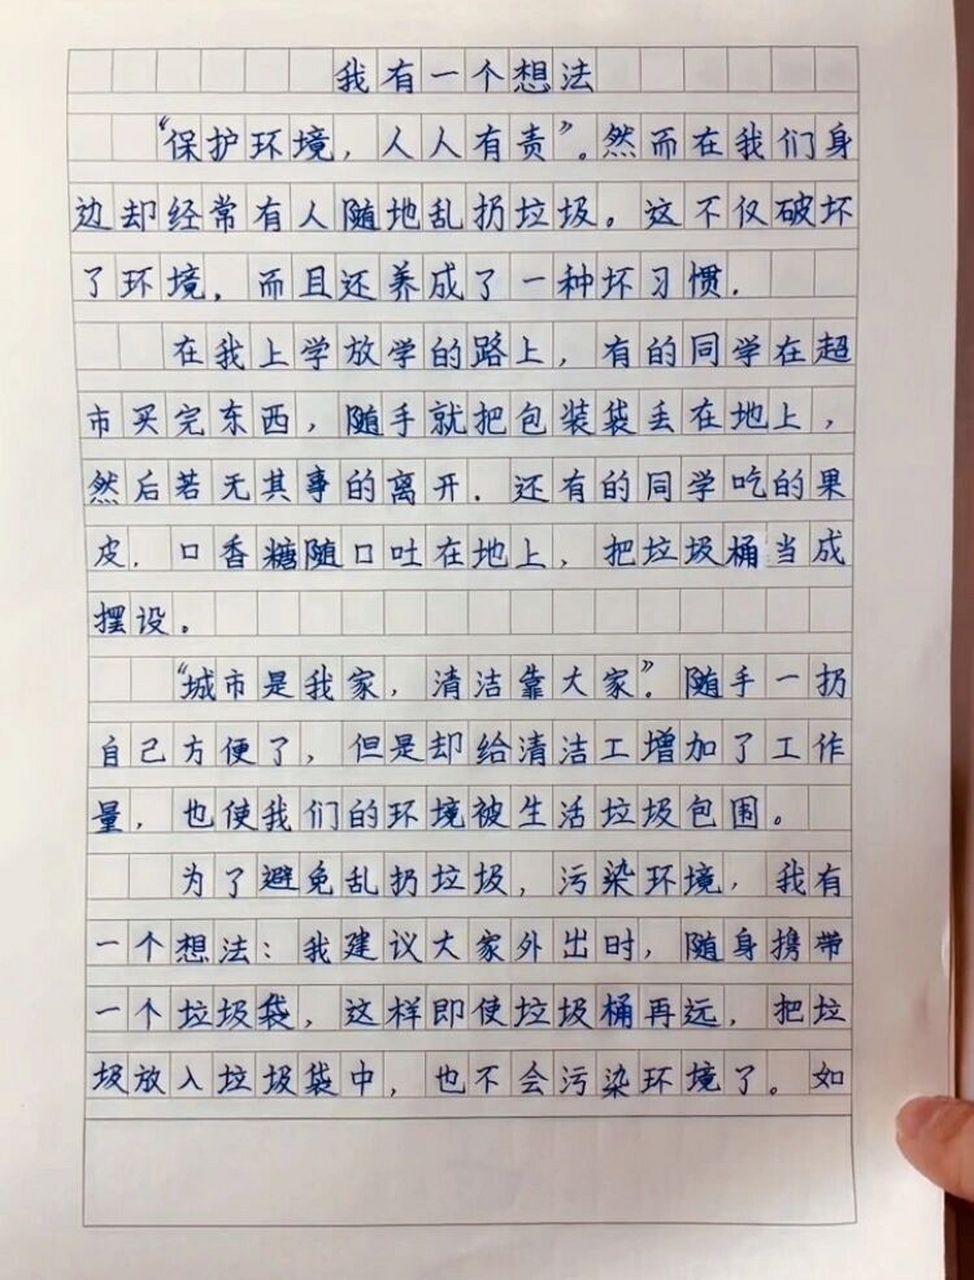 我有一个想法
“保护环境，人人有责”。然而在我们身
边却经常有人随地乱扔垃圾。这不仅破坏
了环境，而且还养成了一种坏习惯.
在我上学放学的路上，有的同学在超
市买完东西，随手就把包装袋丢在地上，
然后若无其事的离开．还有的同学吃的果
皮．口香糖随口吐在地上，把垃圾桶当成
摆设。
“城市是我家，清洁靠大家”。随手一扔
自己方便了，但是却给清洁工增加了工作
量，也使我们的环境被生活垃圾包围。
为了避免乱扔垃圾，污染环境，我有
一个想法：我建议大家外出时，随身携带
一个垃圾袋，这样即使垃圾桶再远，把垃
圾放入垃圾袋中，也不会污染环境了。如